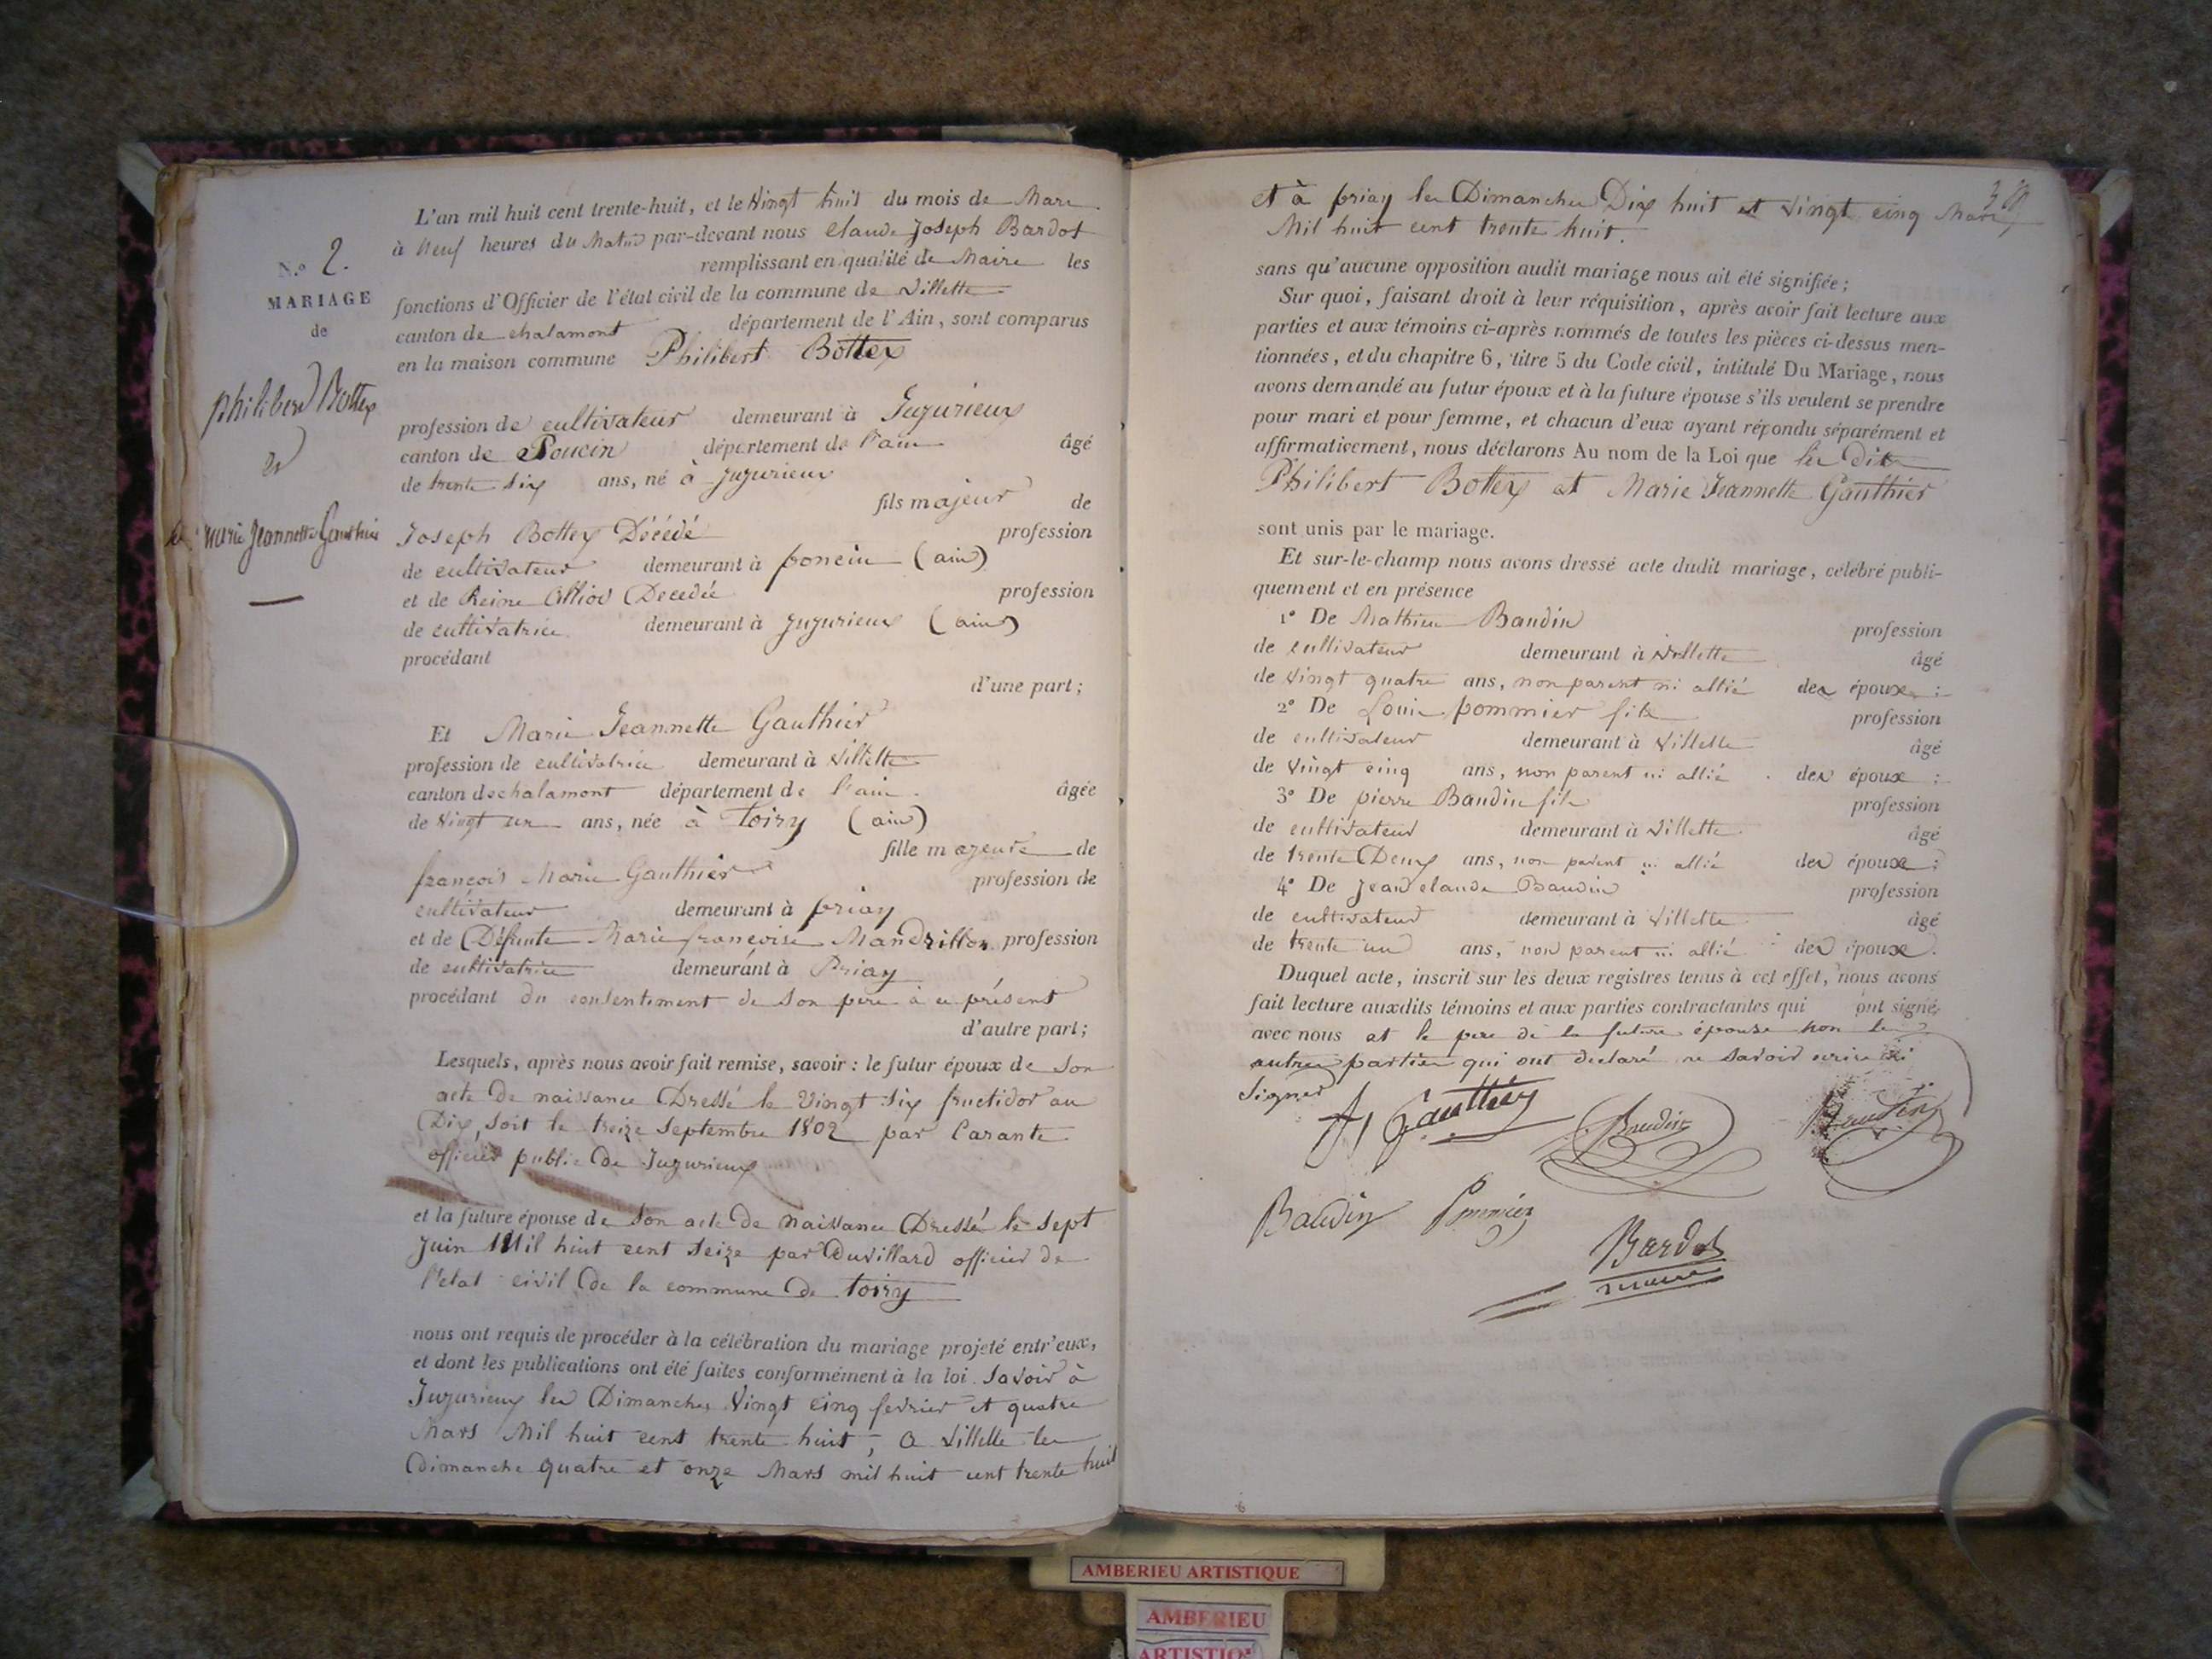 L'an mil huit cent trente-huit, et le Vingt huit du mois de Mars
à Neuf heures du Matin par-devant nous Claude Joseph Bardot
remplissant en qualité de Maire les
fonctions d'Officier de l'état civil de la commune de Villette
canton de chalamont département de l'Ain, sont comparus
en la maison commune Philibert Bottex
profession de cultivateur demeurant à Jujurieux
canton de Poncin département de l'ain âgé
de trente six ans, né à jujurieux
fils majeur de
Joseph Bottex Décédé profession
de cultivateur demeurant à poncin (ain)
et de Reine Décédée profession
de cultivatrice demeurant à jujurieux (ain)
procédant
d'une part;
Et Marie Jeannette Gauthier
profession de cultivatrice demeurant à Villette
canton de chalamont département de l'ain âgée
de Vingt un ans, née à toiry (ain)
fille majeure de
françois Marie Gauthier profession de
cultivateur demeurant à priay
et de Défunte Marie françoise Mandrillon profession
de cultivatrice demeurant à Priay
procédant du consentement de son père à ce présent
d'autre part;
Lesquels, après nous avoir fait remise, savoir : le futur époux de Son
acte De naissance Dressé le Vingt Six fructidor an
Dix, soit le treize Septembre 1802 par Carante
officier public De Jujurieux
et la future épouse de Son acte De naissance Dressé le sept
Juin Mil huit cent Seize par Duvillard officier de
l'état civil De la commune De toiry
nous ont requis de procéder à la célébration du mariage projeté entr'eux,
et dont les publications ont été faites conformément à la loi Savoir à
Jujurieux les Dimanches Vingt cinq fevrier et quatre
Mars Mil huit cent trente huit, a Villette les
Dimanche quatre et onze Mars mil huit cent trente huit
N.o 2.
MARIAGE
de
philibert Bottex
et
marie Jeannette Gauthier
et à priay les Dimanches Dix huit et Vingt cinq Mars
Mil huit cent trente huit.
sans qu'aucune opposition audit mariage nous ait été signifiée;
Sur quoi, faisant droit à leur réquisition, après avoir fait lecture aux
parties et aux témoins ci-après nommés de toutes les pièces ci-dessus men-
tionnées, et du chapitre 6, titre 5 du Code civil, intitulé Du Mariage, nous
avons demandé au futur époux et à la future épouse s'ils veulent se prendre
pour mari et pour femme, et chacun d'eux ayant répondu séparément et
affirmativement, nous déclarons Au nom de la Loi que les dits
Philibert Bottex et Marie Jeannette Gauthier
sont unis par le mariage.
Et sur-le-champ nous avons dressé acte dudit mariage, célébré publi-
quement et en présence
1° De Mathieu Baudin profession
de cultivateur demeurant à Villette âgé
de Vingt quatre ans, non parent ni allié des époux ;
2° De Louis pommier fils profession
de cultivateur demeurant à Villette âgé
de Vingt cinq ans, non parent ni allié des époux ;
3° De pierre Baudin fils profession
de cultivateur demeurant à Villette âgé
de trente Deux ans, non parent ni allié des époux ;
4° De Jean claude Baudin profession
de cultivateur demeurant à Villette âgé
de trente un ans, non parent ni allié des époux.
Duquel acte, inscrit sur les deux registres tenus à cet effet, nous avons
fait lecture auxdits témoins et aux parties contractantes qui ont signé,
avec nous et le père de la future épouse non les
autres parties qui ont declaré ne savoir écrire ni
Signer
Gauthier Baudin Baudin
Baudin Pommier
Bardot
maire
AMBERIEU ARTISTIQUE
AMBERIEU
ARTISTIQ